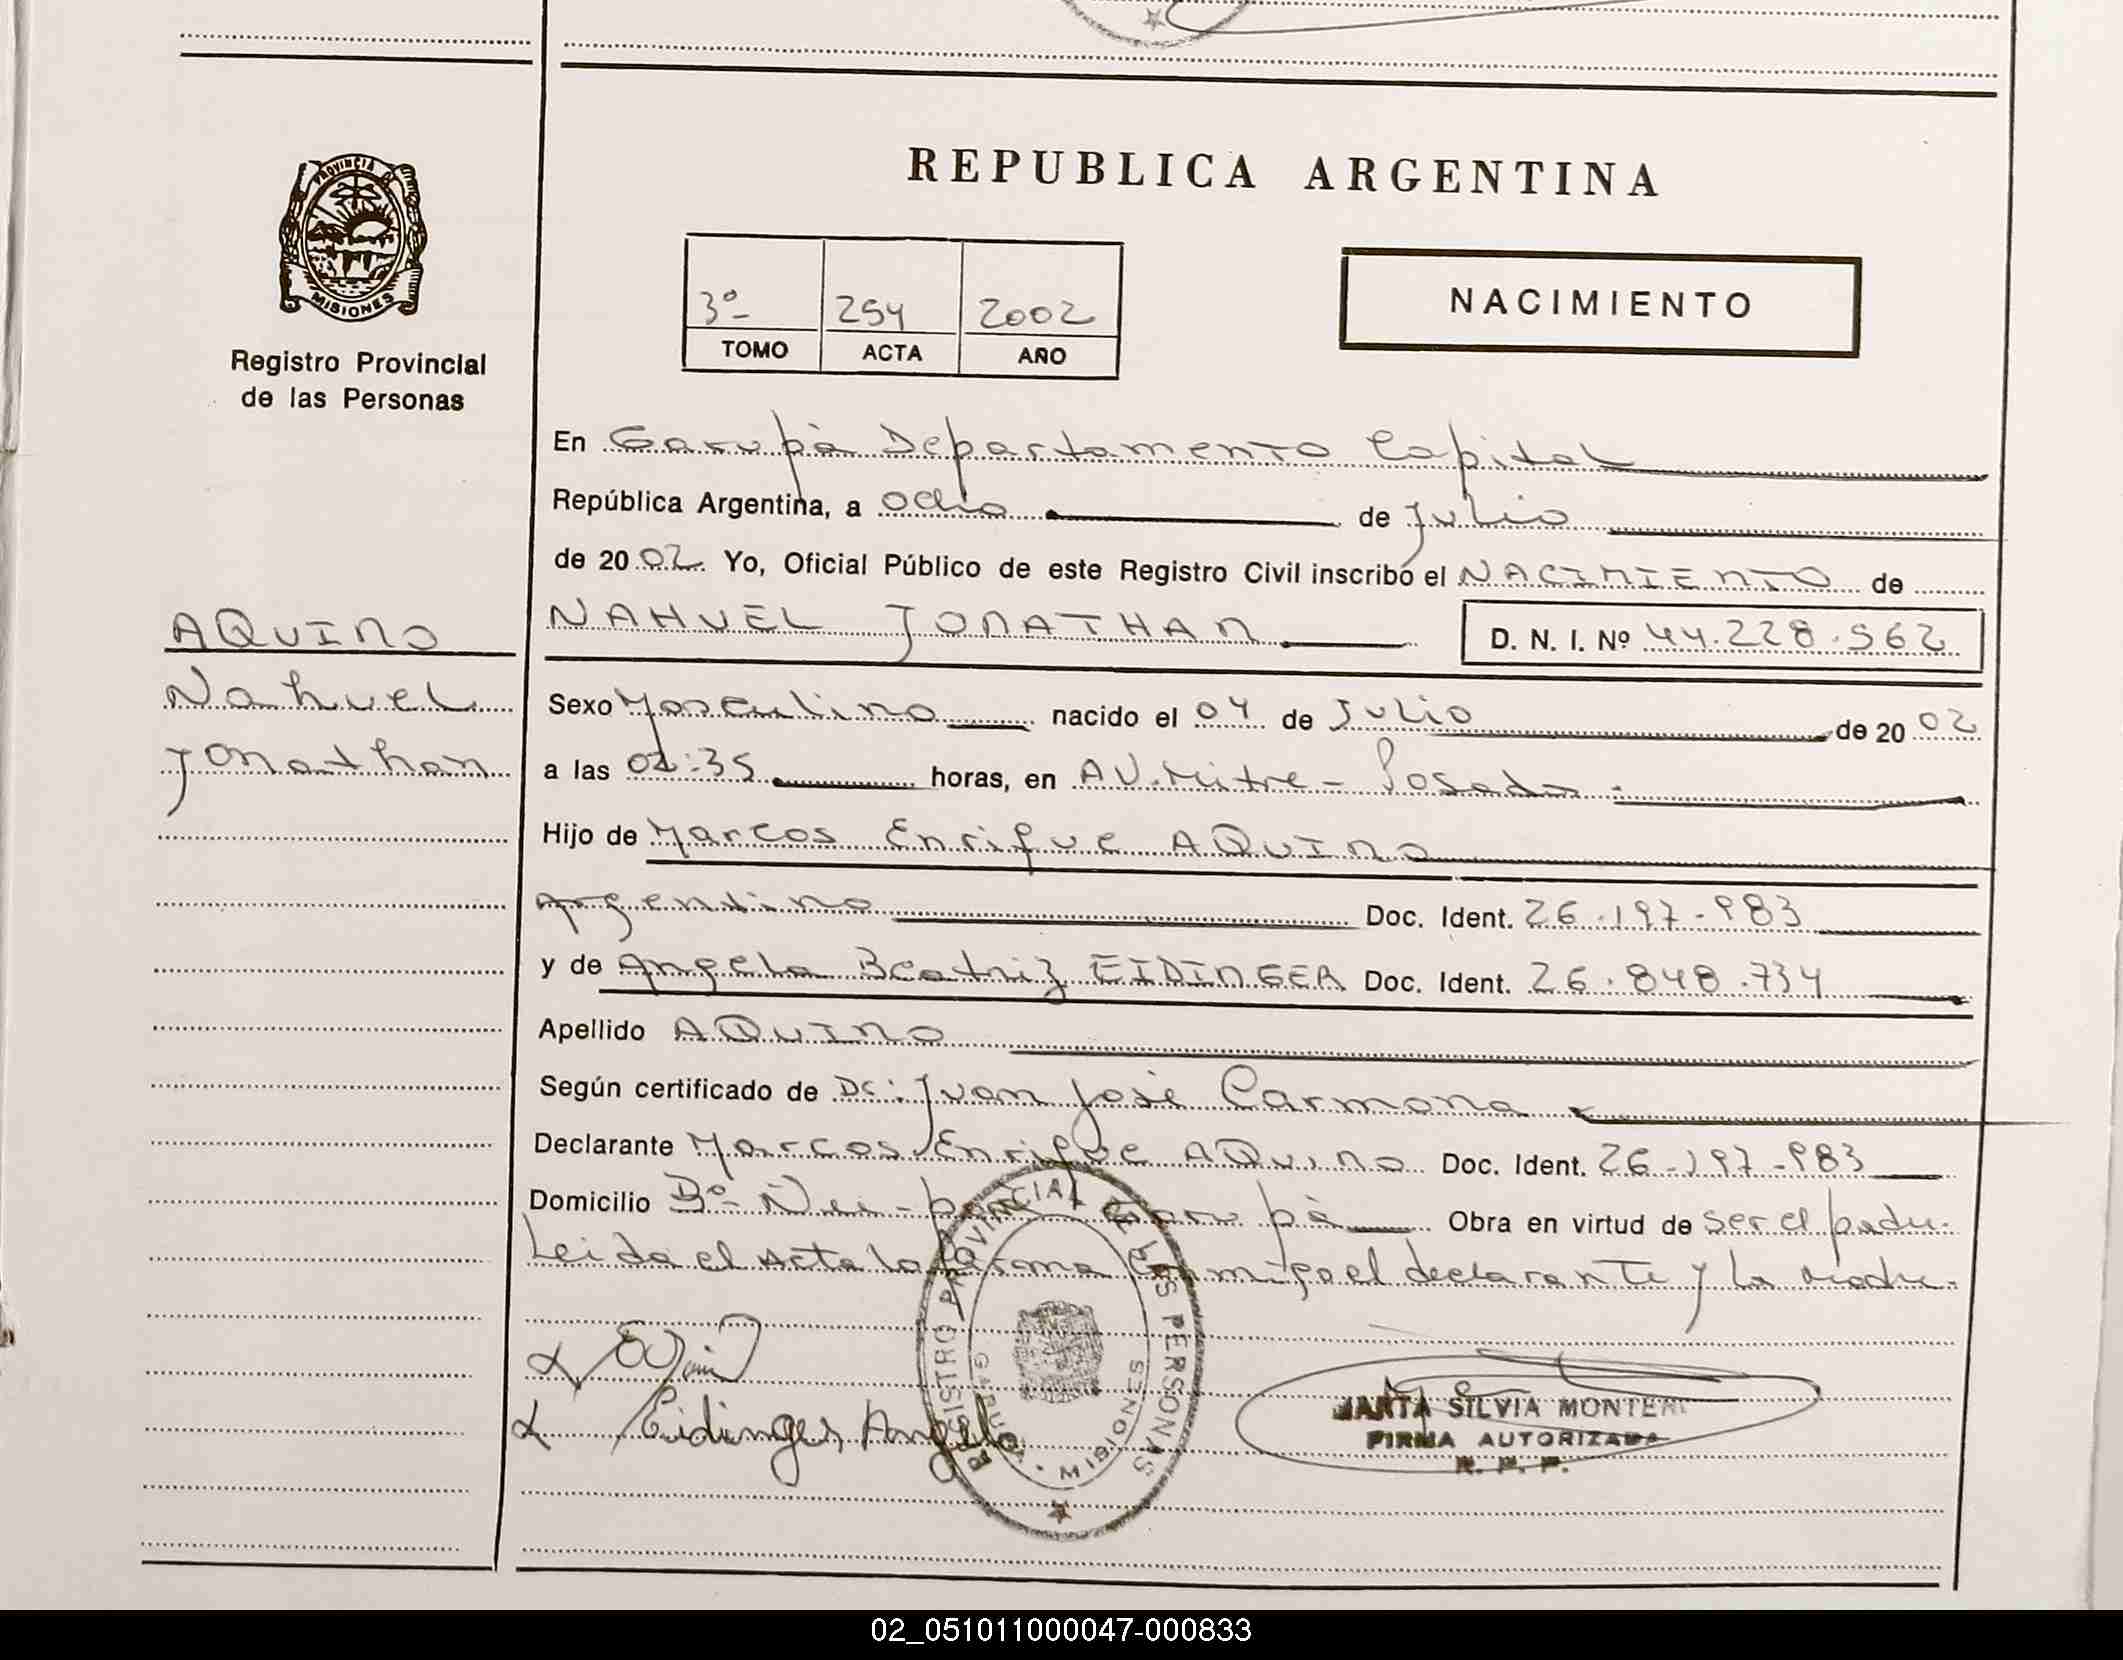 REPUBLICA ARGENTINA
PROVINCIA DE
MISIONES
Registro Provincial
de las Personas
3º 254 2002
TOMO ACTA AÑO
NACIMIENTO
En Garupà Departamento Capital
República Argentina, a ocho de Julio
de 20 02 Yo, Oficial Público de este Registro Civil inscribo el NACIMIENTO de
AQUINO
Nahuel
Jonathan
NAHUEL JONATHAN D. N. I. Nº 44.228.562
Sexo Masculino nacido el 04 de Julio de 20 02
a las 02:35 horas, en AV. Mitre - Posadas.
Hijo de Marcos Enrique AQUINO
Argentino Doc. Ident. 26.197.983
y de Angela Beatriz EIDINGER Doc. Ident. 26.848.734
Apellido AQUINO
Según certificado de Dr: Juan José Carmona
Declarante Marcos Enrique AQUINO Doc. Ident. 26.197.983
Domicilio Bº Ñu-porá Garupà Obra en virtud de ser el padre.
Leida el Acta la firma conmigo el declarante y la madre.
Eidinger Angela
REGISTRO PROVINCIAL DE LAS PERSONAS
GARUPA - MISIONES
MARTA SILVIA MONTERO
FIRMA AUTORIZADA
R. P. P.
02_051011000047-000833